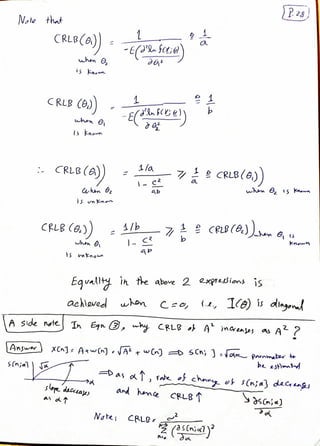 P.28
Note that
CRLB(θ₁) = 1 / -E(∂²ln f(x;θ) / ∂θ₁²) ≜ 1/a
when θ₂
is known
CRLB (θ₂) = 1 / -E(∂²ln f(x;θ) / ∂θ₂²) ≜ 1/b
when θ₁
is known
∴ CRLB(θ₁) = 1/a / (1 - c²/ab) ⩾ 1/a ≜ CRLB(θ₁)
when θ₂ when θ₂ is known
is unknown
CRLB(θ₂) = 1/b / (1 - c²/ab) ⩾ 1/b ≜ CRLB(θ₂) when θ₁ is
is unknown known
Equality in the above 2 expressions is
achieved when C=0, i.e, I(θ) is diagonal
A side note In Eqn ③, why CRLB of A² increases as A² ?
Answer x[n] = A+w[n] = √A² + w[n] ⟹ s[n; ] = √α parameter to
be estimated
s[n;α] √α ⟹ as α ↑, rate of change of s[n;α] decreases
slope decreases and hence CRLB ↑ ∂s[n;α] / ∂α
as α ↑
Note: CRLB = σ² / Σ (∂s[n;α] / ∂α)²
n=0